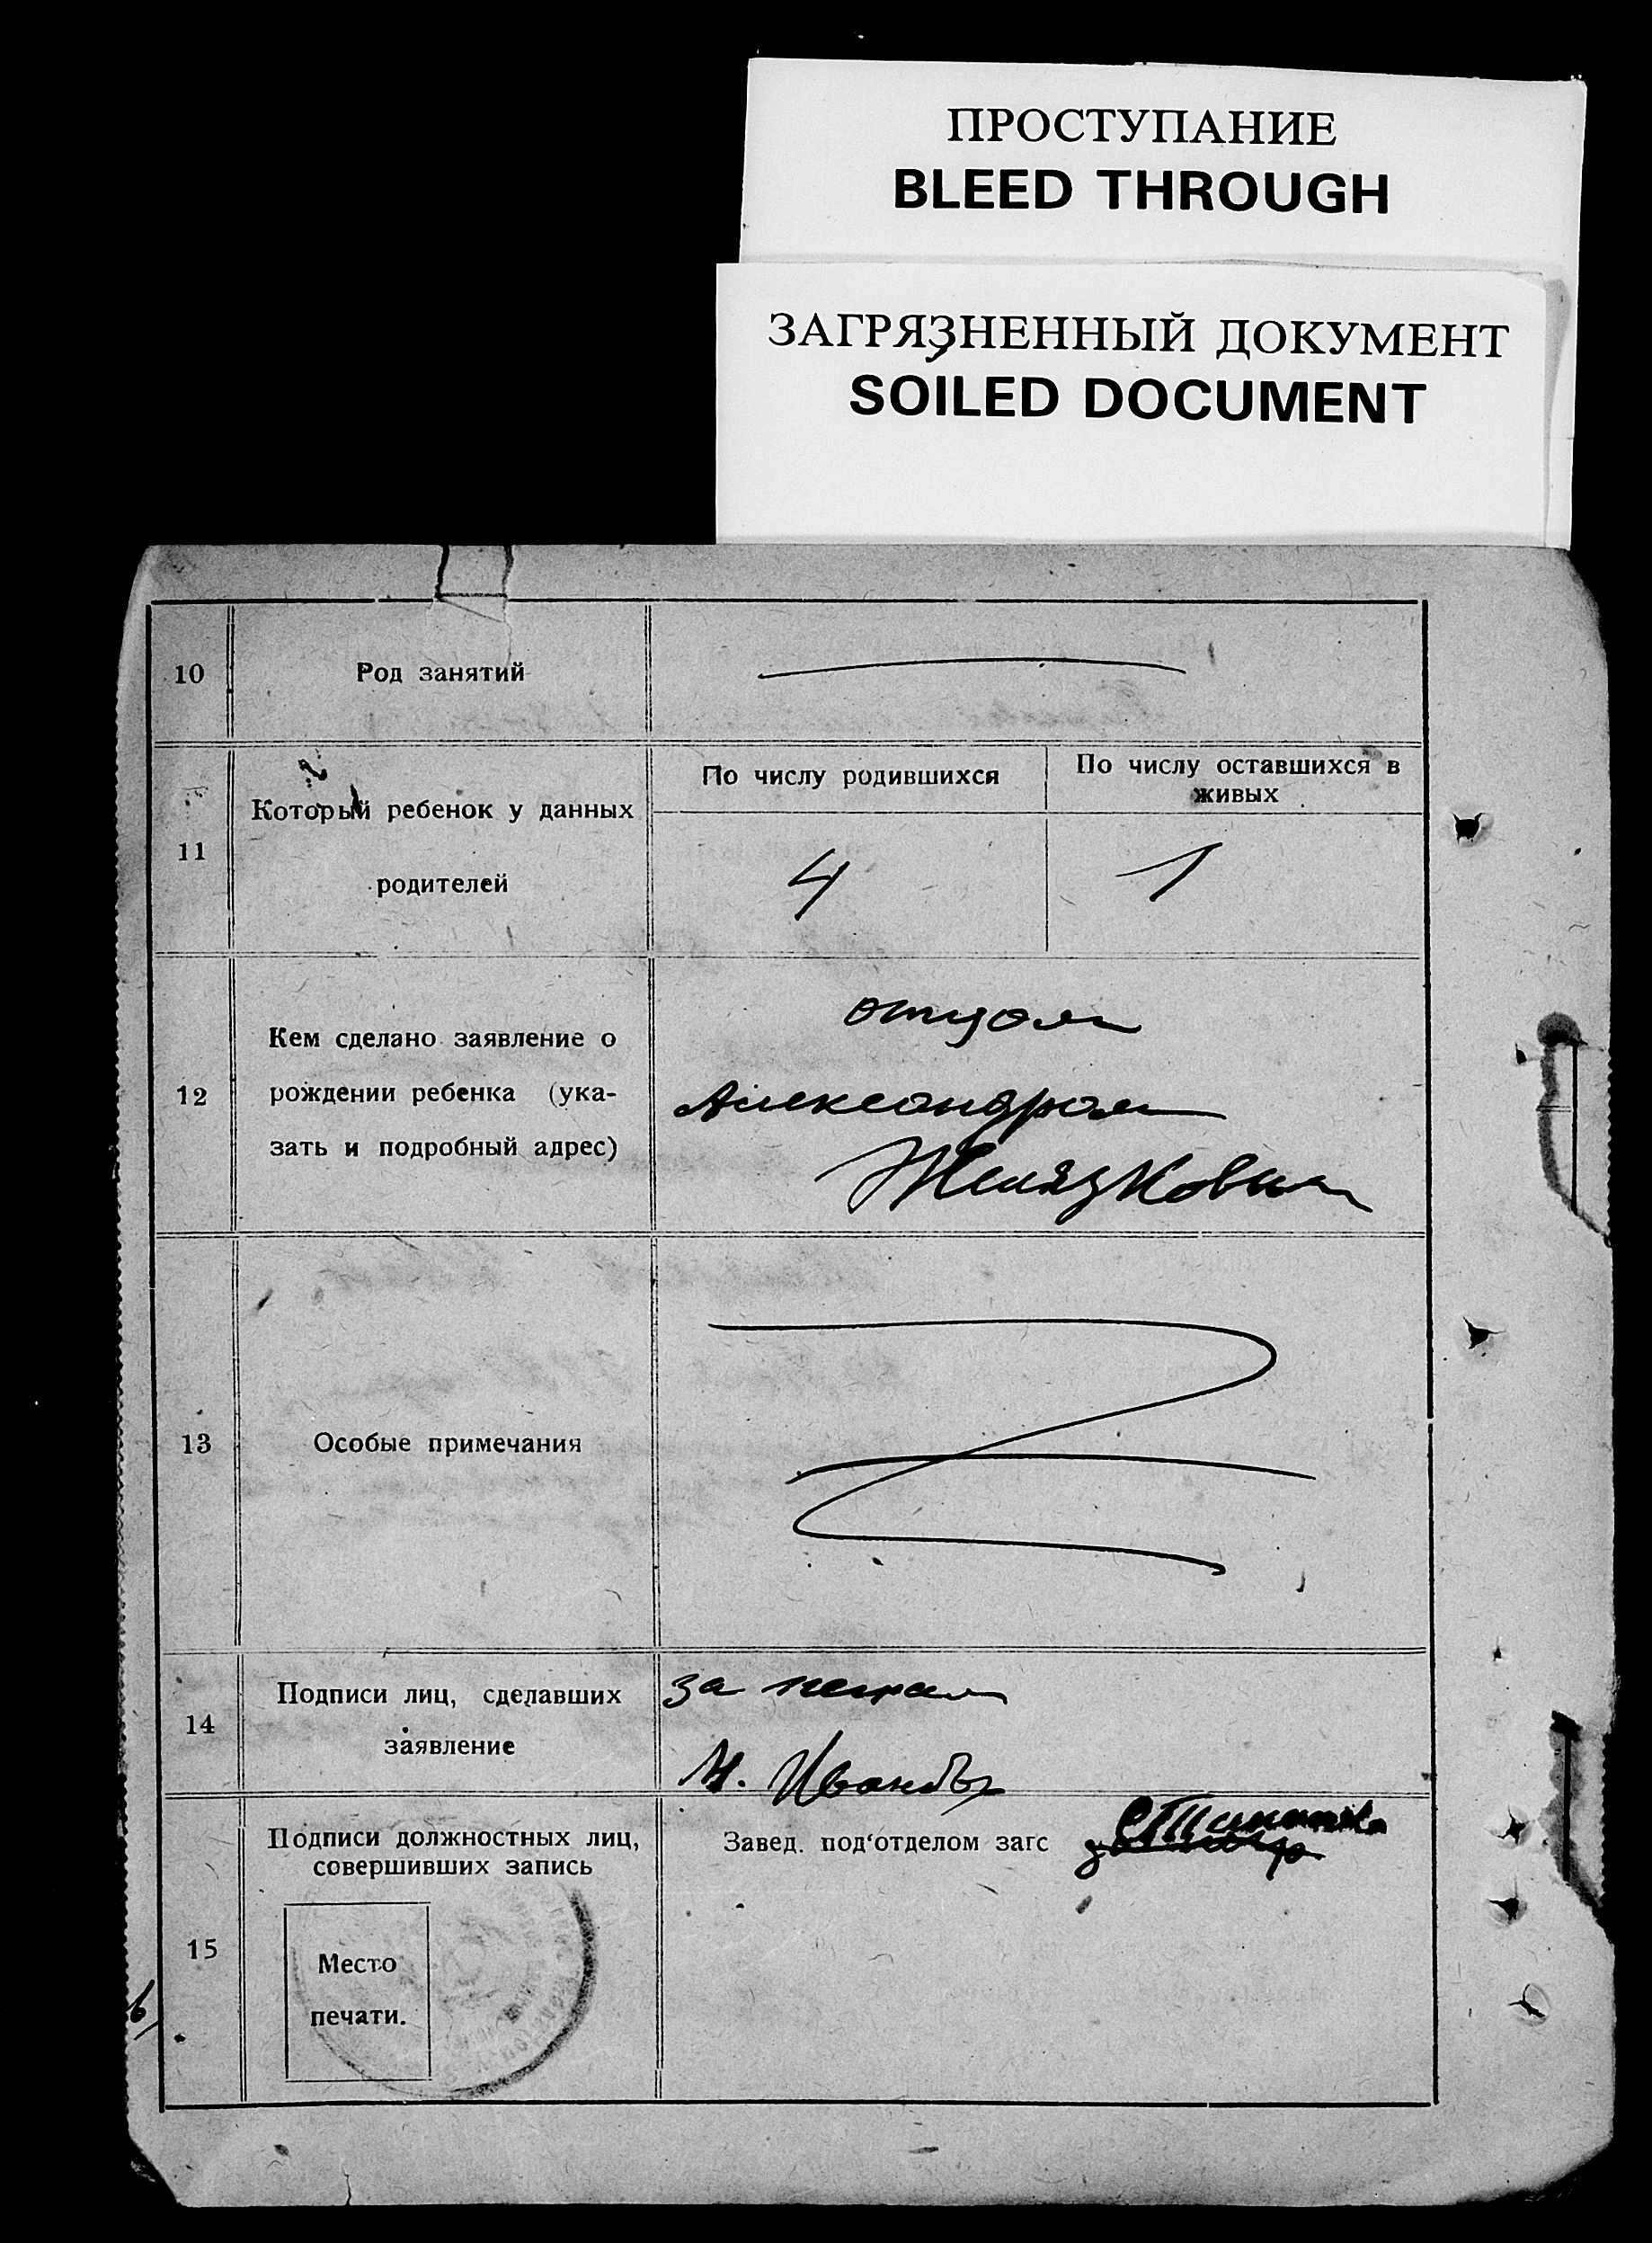 ПРОСТУПАНИЕ
BLEED THROUGH
ЗАГРЯЗНЕННЫЙ ДОКУМЕНТ
SOILED DOCUMENT
10
Род занятий
11
Который ребенок у данных
родителей
По числу родившихся
По числу оставшихся в
живых
4
1
12
Кем сделано заявление о
рождении ребенка (ука-
зать и подробный адрес)
отцом
Александром
Желязковым
13
Особые примечания
14
Подписи лиц, сделавших
заявление
за
И. Иванов
15
Подписи должностных лиц,
совершивших запись
Место
печати.
Завед. под'отделом загс